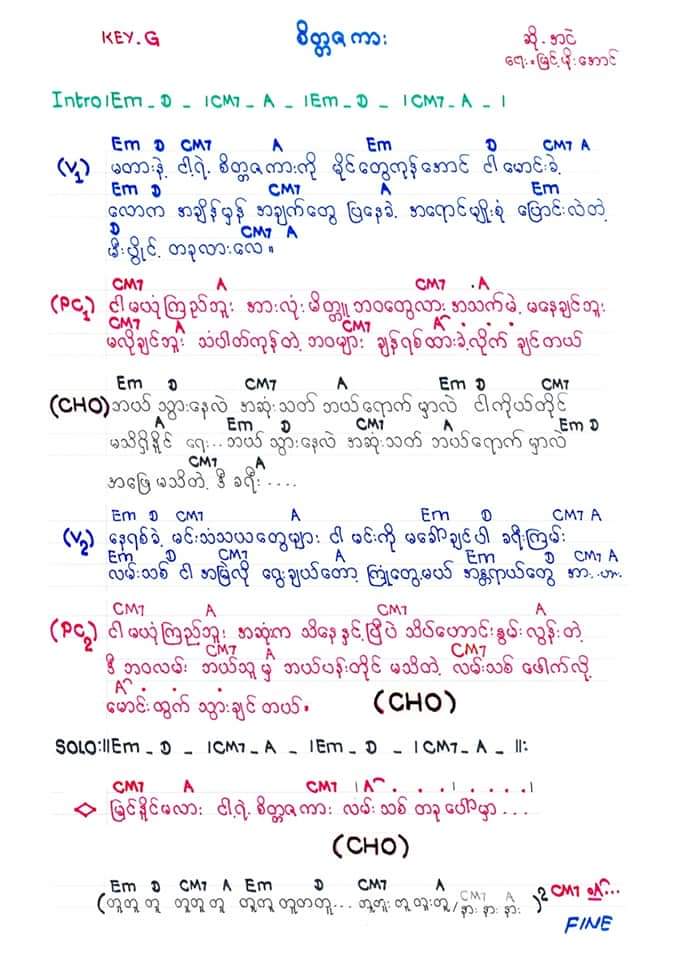 KEY.G
စိတ္တဇကား
ဆို.အငဲ
ရေး.မြင့်မိုးအောင်
Intro|Em _ D _ |CM7 _ A _ |Em _ D _ |CM7 _ A _ |
Em D CM7 A Em D CM7 A
(V1) မတားနဲ့ ငါ့ရဲ့ စိတ္တဇကားကို မိုင်တွေကုန်အောင် ငါ မောင်းခဲ့
Em D CM7 A Em
လောက အချိန်မှန် အချက်တွေ ပြနေခဲ့ အရောင်မျိုးစုံ ပြောင်းလဲတဲ့
D CM7 A
မီးပွိုင့် တခုလားလေ။
CM7 A CM7 .A
(PC1) ငါမယုံကြည်ဘူး အားလုံးမိတ္တူ ဘဝတွေလား အသက်မဲ့ မနေချင်ဘူး
CM7 A CM7 A . . .
မလိုချင်ဘူး သံပါတ်ကုန်တဲ့ ဘဝများ ချန်ရစ်ထားခဲ့လိုက် ချင်တယ်
Em D CM7 A Em D CM7
(CHO) ဘယ် သွားနေလဲ အဆုံးသတ် ဘယ်ရောက် မှာလဲ ငါကိုယ်တိုင်
A Em D CM7 A Em D
မသိရှိနိုင် ရေး...ဘယ် သွားနေလဲ အဆုံးသတ် ဘယ်ရောက် မှာလဲ
CM7 A
အဖြေမသိတဲ့ ဒီ ခရီး ....
Em D CM7 A Em D CM7 A
(V2) နေရစ်ခဲ့ မင်းသံသယတွေများ ငါ မင်းကို မခေါ်ချင်ပါ ခရီးကြမ်း
Em D CM7 A Em D CM7 A
လမ်းသစ် ငါ အမြဲလို ရွေးချယ်တော့ ကြုံတွေ့မယ် အန္တရာယ်တွေ အား..ဟား
CM7 A CM7 A
(PC2) ငါမယုံကြည်ဘူး အဆုံးက သိနေနှင့်ပြီပဲ သိပ်ဟောင်းနွမ်းလွန်းတဲ့
CM7 A CM7
ဒီ ဘဝလမ်း ဘယ်သူမှ ဘယ်ပန်းတိုင် မသိတဲ့ လမ်းသစ် ဖေါက်လို့
A . . .
မောင်းထွက် သွားချင်တယ်။ (CHO)
SOLO:||Em _ D _ |CM7 _ A _ |Em _ D _ |CM7 _ A _ ||:
CM7 A CM7 |A . . . | . . . . |
မြင်နိုင်မလား ငါ့ရဲ့စိတ္တဇကား လမ်းသစ် တခုပေါ်မှာ ...
(CHO)
Em D CM7 A Em D CM7 A CM7 A
(တူတူတူ တူတူတူ တူတူ တူတတူ... တူတူး တူတူးတူ/နား နား နား )2 CM7 A...
FINE